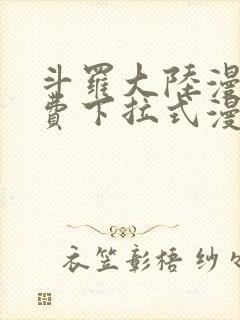 斗羅大陸漫
費下拉式漫
衣笠彰梧 紗